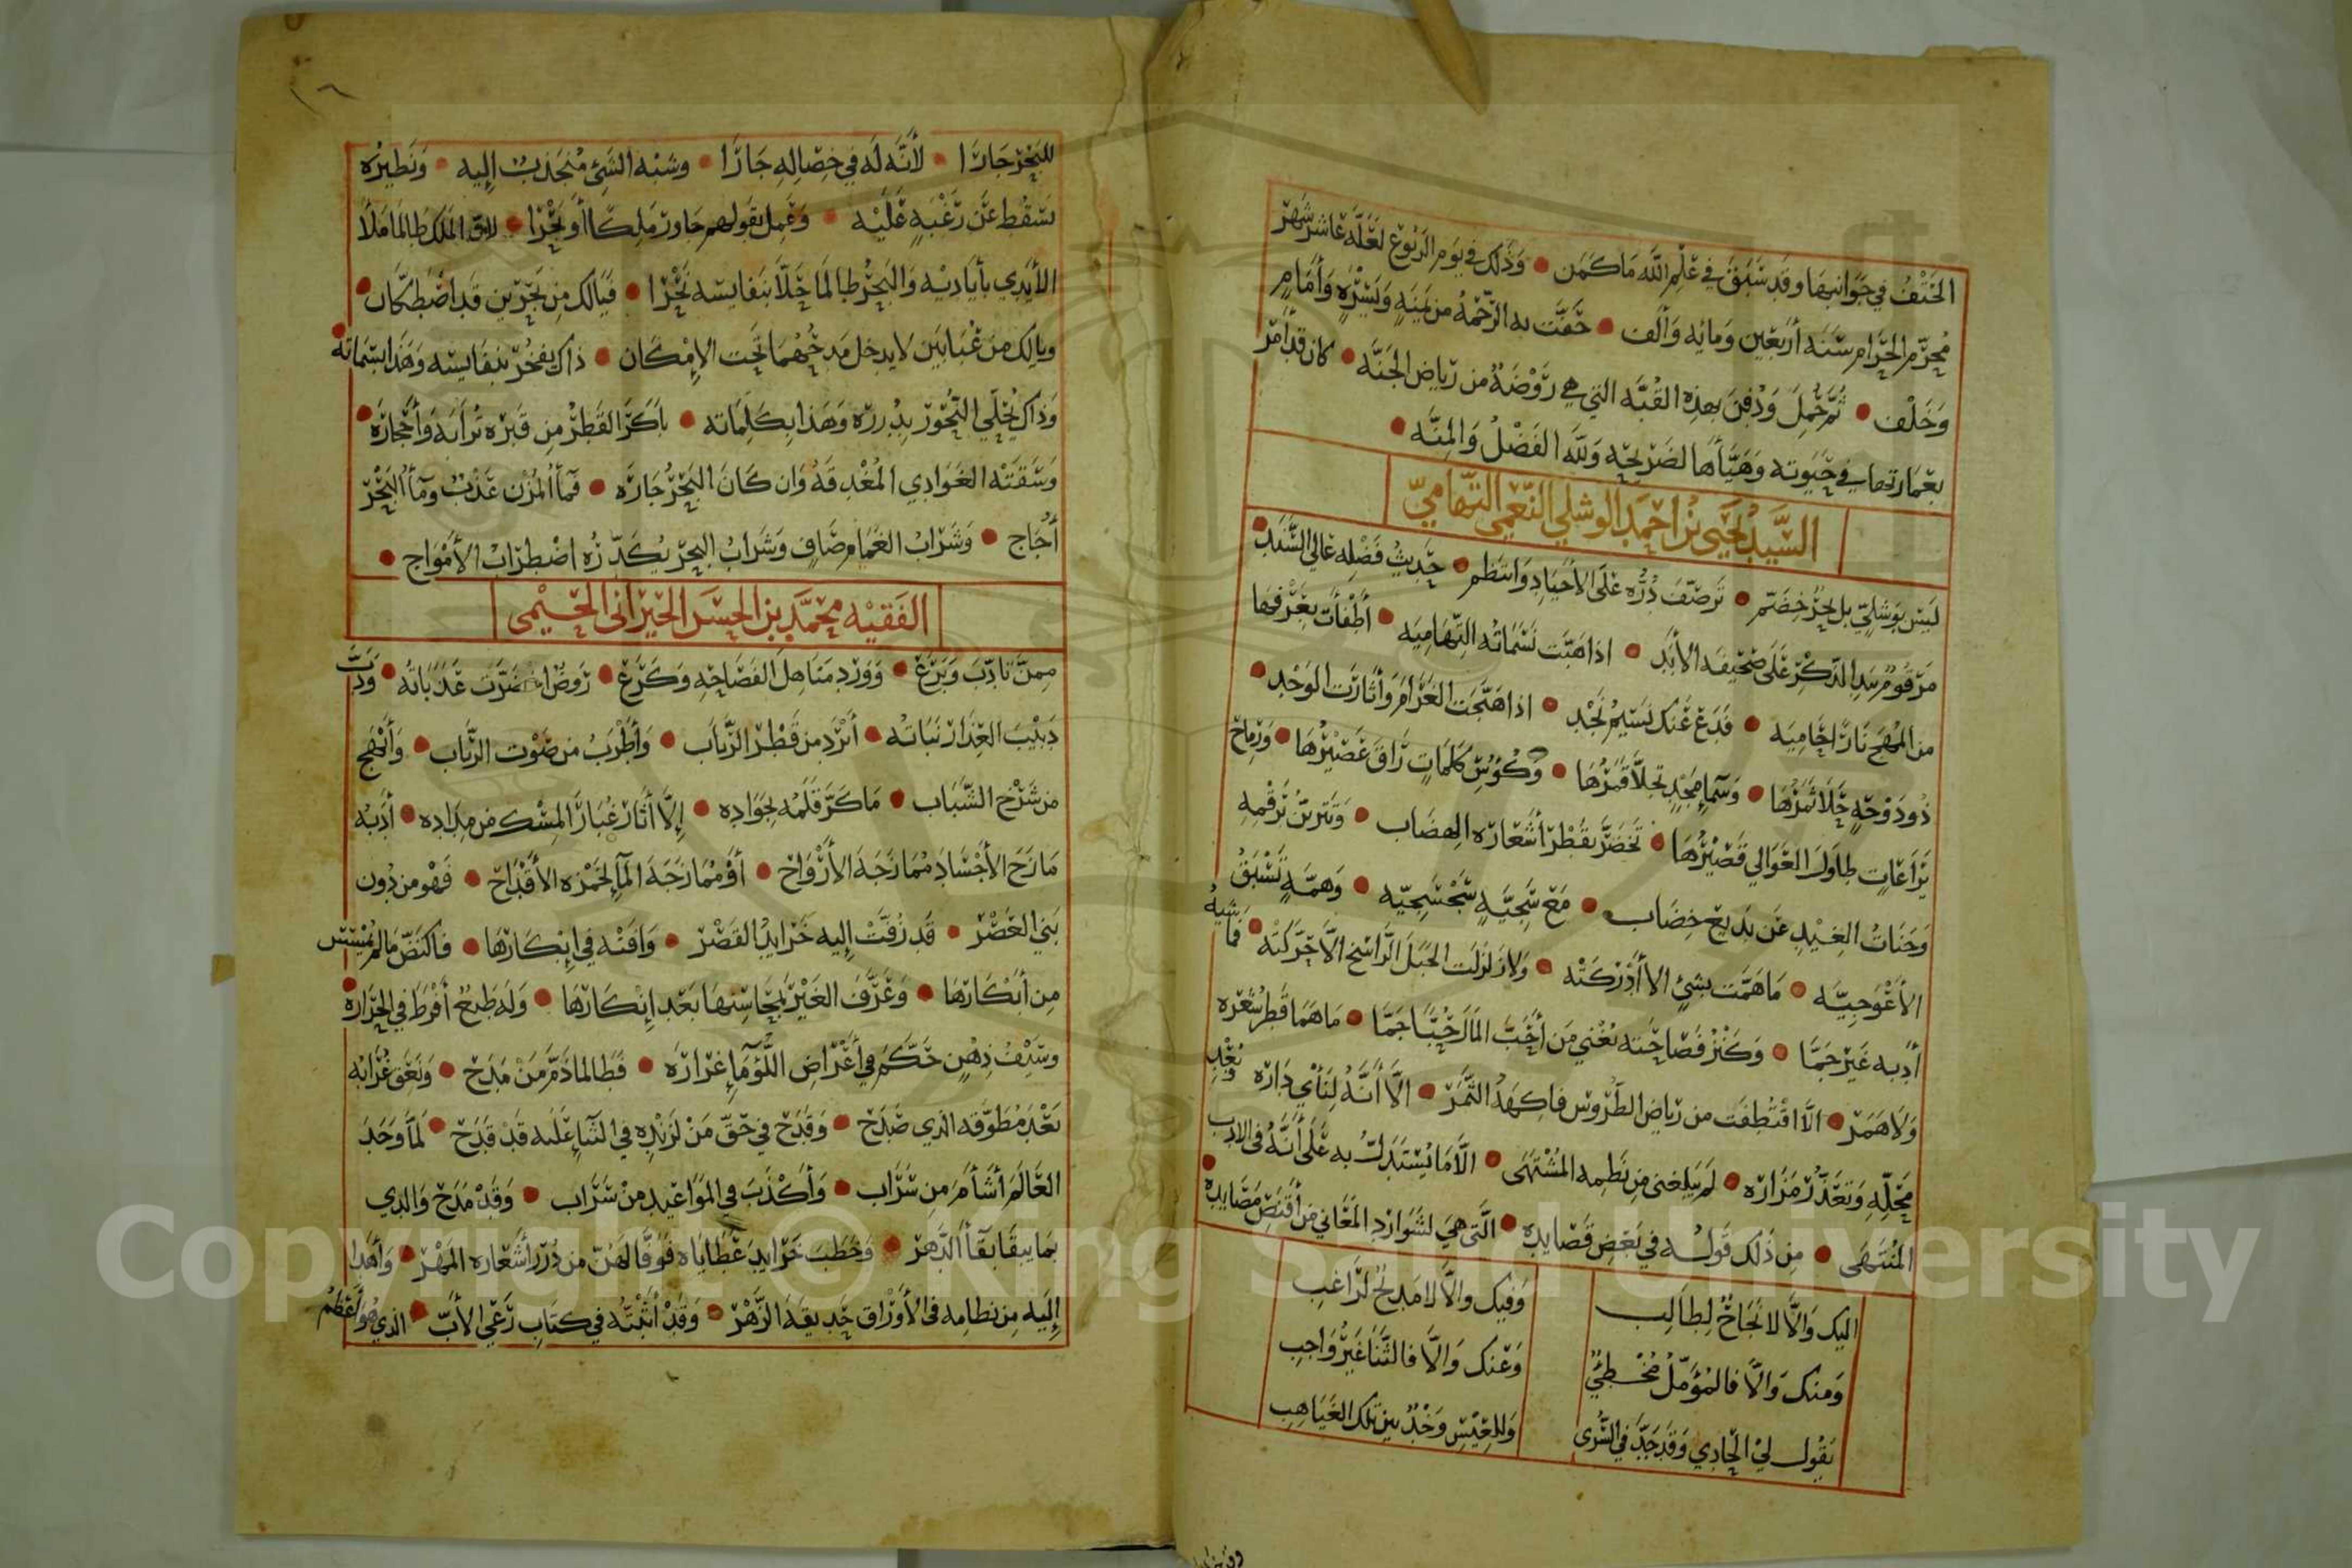 الحَتْفُ في جَوَانبهَا وقد سَبَقَ في عِلْمِ اللَّه مَا كَمَن • وَذَلك في يَوم الرَبُوع لعَلَّه عَاشر شَهرْ
مُحرّم الحَرَام سَنَة أرْبَعِين وَمايه وَألف • حَفَّت به الرَّحْمَةُ من يَمينهِ وَيَسْرِه وَأمَامِ
وَخَلْف • ثُمّ حُمِلَ وَدُفِنَ بهذه القُبّه التي هي رَوْضَةٌ من رِيَاض الجَنَّه • كان قد أمَرْ
بعمَارتها في حَيَوته وَهَيَّأهَا لضَرِيحِه وَلِلَّهِ الفَضْلُ وَالمِنَّه •
السَّيِّد يَحْيَى بن احمَد الوشلي النّعمي التّهاميّ
لَيسَ بوَشَلِيّ بل بحْرٌ خِضَم • تَرصّفَ دُرُّه عَلَى الأجيَادِ وَانتَظم • حَدِيثُ فَضْله عَالي السَّنَد •
مَرقومُ بيَدِ الذّكْر عَلَى صَحِيفَة الأبَد • اذا هَبَّت نَسَمَاتُه التِّهَامِيَه • أطْفَأت بعَرْفِهَا
من المُهَج نَارًا حَامِيَه • فَدَع عَنك نَسِيمُ نَجْد • اذا هَيَّجَت الغَرَامَ وَأثَارَت الوَجْد •
ذُو دَوْحَةٍ حَلَا ثَمَرُهَا • وَسَمآءِ مَجْدٍ تجلّا قمَرُهَا • وَكُؤُسِ كَلِمَاتٍ رَاقَ عَصِيْرُهَا • وَرِمَاحُ
يَرَاعَاتٍ طاوَلَ العَوالي قَصِيْرُهَا • تَخضَرّ بقَطْر أشْعَارِه الهضَاب • وَتتَزيّنُ برَقْمِهِ
وَجَنَاتُ الغِيْدِ عَن بَدِيع خِضَاب • مَعَ سَجِيَّةٍ سَجْسَجِيّه • وَهِمَّةٍ تَسْبِقُ
الأعْوَجِيَّه • مَا هَمَّت بشيْءٍ الا أدْرَكَتْه • وَلا زلزلَت الجَبَلَ الرَّاسخ الاّ حَرَّكَتْه • فمَا شِيهُ
أدَبه غَيرَ جَمَّا • وَكَنْزُ فَصَاحَتِه تُغْني مَن أحَبَّ المالَ حُبًّا جَمَّا • مَا هَمَا قَطر شِعْرِه
وَلا هَمَر • الَّا اقْتُطِفَت من رِيَاض الطّرُوس فاكِهَةُ الثَّمَرْ • الَّا أنَّهُ لِنَأيِ دَارِه وَبُعْدِ
مَحَلِّهِ وَتعَذّر مَزَارِه • لم يَبلغني مِن نَظمِه المُشْتهَى • الَّا مَا يُستَدَلّ به عَلَى أنَّهُ في الادب
المُنْتَهَى • مِن ذَلك قَولُه في بَعْض قَصَايدِه • الَّتي هيَ لشَوارِد المَعَاني من أقنَصِ مَصَايده •
اليك وَالاَّ لا نَجَاحٌ لِطالِب    وَفيك والاَّ لا مَدِيحٌ لرَاغِبِ
وَمنك وَالاَّ فالمُؤمّلُ مُخْطِئٌ    وَعَنك وَالاَّ فالثّنَا غَيرُ وَاجبِ
يَقُول ليَ الحَادِي وَقَد جَدَّ في السُّرَى    وَللعِيْسِ وَخْدٌ بين تلك الغَيَاهِبِ
للبَحْرِ جَارًا • لأنَّه لَه في خِصَاله جَارًا • وشَبْهُ الشَيْءِ مُنجَذِبٌ إليه • وَنَطيرُه
يسقُط عَن رَغْبَةٍ عَلَيْه • وَعَمِل بقَولِهم جَاور مَلِكًا أو بَحْرًا • لأنّ المَلك طالمَا مَلأ
الأيدِي بأيَادِيْه وَالبَحْرُ طالمَا حَلّا بنفَايسِه نَحْرًا • فَيَالك مِن بَحْرَين قَد اصْطَكّان •
ويالك من عُبَابَين لا يدخل مَدحُهُمَا تَحت الإمْكان • ذاك يفخُرُ بنفَايسِه وَهَذا بسِمَاته •
وَذَاك يُحَلّي النُّحُورَ بدُررِه وَهَذا بكَلِمَاته • باكَرَ القَطْرُ مِن قَبْرِه تُرَابَه وَأحْجارَه •
وَسَقَتْه الغَوَادِي المُغْدِقَهُ وَان كَانَ البَحْرُ جَارَه • فمآءُ المُزْن عَذْبٌ ومآءُ البَحْر
أُجَاج • وَشَرَابُ الغمَام صَافٍ وَشَرَابُ البَحر يُكَدّرُه اضْطِرابُ الأمْوَاج •
الفَقِيْه محَمَّد بن الحسَن الحَيْرَاني الحَيْمي
مِمنْ تَادَّبَ وَبَرَعَ • وَوَرَدَ مَنَاهِلَ الفَصَاحَةِ وَكَرَع • رَوضٌ اخضَرَّت عَذَبَاتُه • وَدَبَّ
دَبيْبَ العِذارِ نبَاتُه • أبْرَدُ مِن قَطْرِ الرَّبَاب • وَأطْرَبُ من صَوْت الرّبَاب • وَأبْهَج
من شَرْخ الشَّبَاب • مَا كَرّ قلمُه بجوَادِه • إلاّ أثَار غُبَارَ المِسْك من مِدَادِه • أدَبُه
مَازَحَ الأجْسَادَ مُمَازَجَةَ الأرْوَاح • أوْ مُمَازَجَةَ المآءِ لخَمْرَة الأقْدَاح • فهْو من دُون
بَني العَصْر • قَد زُفَّتْ إليه خَرَايدُ القَصْر • وَافَتْه في إبْكَارِهَا • فاكتَضّ مَا لم يُمْسَسْ
مِن أبْكَارِهَا • وَعَرَّفَ الغَيْرَ بمحَاسِنهَا بَعْد إنْكَارِهَا • وَلَه طَبعٌ أفْرَطَ في الحَرَارَه •
وسَيْفُ ذِهْنٍ حَكَّمَ في أعْرَاضِ اللُّؤمَآءِ غِرَارَه • فَطالما ذَمَّ مَنْ مَدَح • وَنَعَقَ غُرَابُه
بَعْدَ مُطَوَّقه الذي صَدَح • وَقَدَح في حَقّ مَنْ لزَنْدِه في الثنَآءِ عَلَيه قَدْ قَدَح • لَمَّا وَجَدَ
العَالَم أشَأمَ مِن سَرَاب • وَأكْذَبَ في المَوَاعيْدِ مِنْ سَرَّاب • وَقَدْ مَدَحَ وَالدِي
بمَا يبقَا بَقَآءَ الدَّهر • وَخَطَبَ خَرَايدَ عَطَايَاه فوَفَّا لهُنّ من دُرَر أشْعَاره المَهْرْ • وَأهْدَا
إليَه مِن نظامِه في الأوْرَاق حَدِيقَةَ الزَّهْر • وَقَدْ أثْبَتُّه في كتَاب رَعْي الأبّ • الذي هُوَ أعْظَم